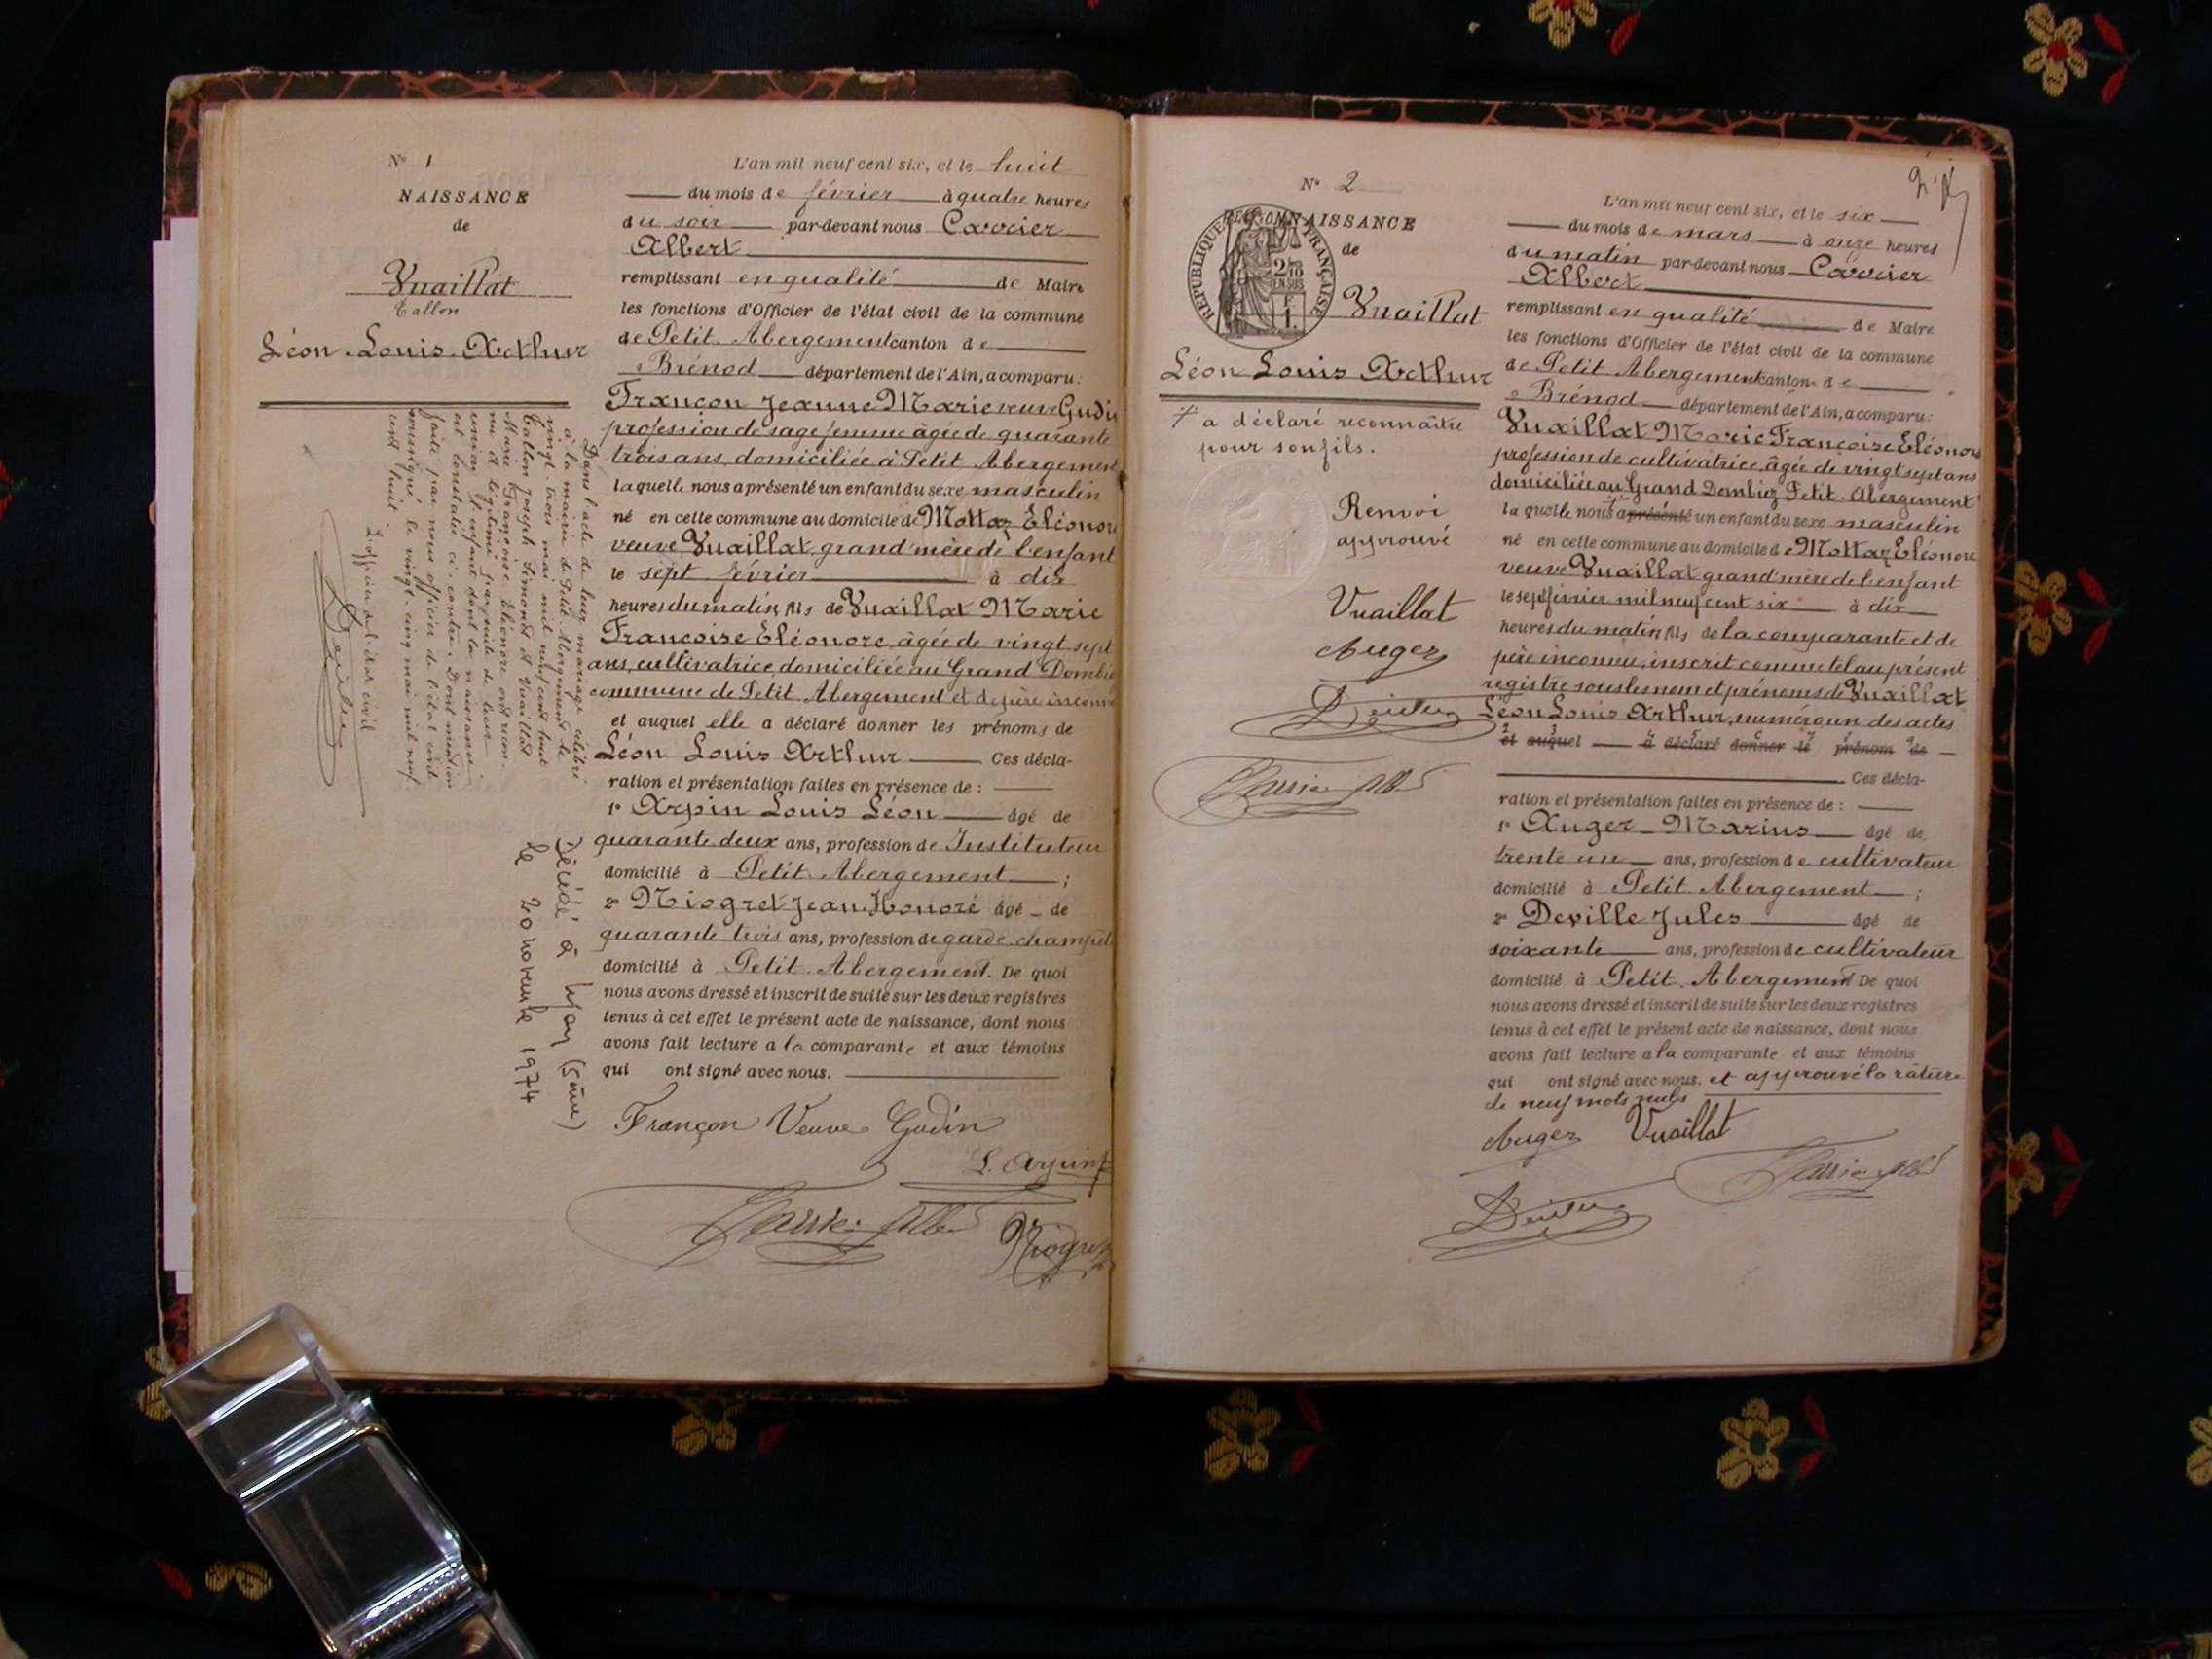 N° 1
NAISSANCE
de
Vuaillat
Tallon
Léon Louis Arthur
L'an mil neuf cent six, et le huit
du mois de février à quatre heures
du soir par-devant nous Carrier
Albert
remplissant en qualité de Maire
les fonctions d'Officier de l'état civil de la commune
de Petit Abergement canton de
Brénod département de l'Ain, a comparu :
Françon Jeanne Marie veuve Gudin
profession de sage femme âgée de quarante
trois ans, domiciliée à Petit Abergement
laquelle nous a présenté un enfant du sexe masculin
né en cette commune au domicile de Mottaz Eléonore
veuve Vuaillat, grand'mère de l'enfant
le sept février à dix
heures du matin, fils de Vuaillat Marie
Françoise Eléonore, âgée de vingt sept
ans, cultivatrice, domiciliée au Grand Dombiez
commune de Petit Abergement et de père inconnu
et auquel elle a déclaré donner les prénoms de
Léon Louis Arthur Ces décla-
ration et présentation faites en présence de :
1° Arpin Louis Léon âgé de
quarante deux ans, profession de Instituteur
domicilié à Petit Abergement ;
2° Niogret Jean Honoré âgé de
quarante trois ans, profession de garde champêt
domicilié à Petit Abergement. De quoi
nous avons dressé et inscrit de suite sur les deux registres
tenus à cet effet le présent acte de naissance, dont nous
avons fait lecture a la comparante et aux témoins
qui ont signé avec nous.
Françon Veuve Gudin
L. Arpin
Carrier Albert
Niogret
Dans l'acte de leur mariage célébré
à la mairie de Petit Abergement le
vingt-trois mai mil neuf cent huit
Tallon Joseph Simond et Vuaillat
Marie Françoise Eléonore ont recon-
nu et légitimé par suite de leur
union l'enfant dont la naissance
est constatée ci-contre. Dont mention
faite par nous officier de l'état civil
soussigné le vingt-cinq mai mil neuf
cent huit
L'officier de l'état civil
Décédé à Lyon
le 20 novembre 1974
N° 2
NAISSANCE
de
RÉPUBLIQUE FRANÇAISE
2/10
EN SUS
Vuaillat
Léon Louis Arthur
a déclaré reconnaître
pour son fils.
Renvoi
approuvé
Vuaillat
Auger
Carrier Albert
L'an mil neuf cent six, et le six
du mois de mars à onze heures
du matin par-devant nous Carrier
Albert
remplissant en qualité de Maire
les fonctions d'Officier de l'état civil de la commune
de Petit Abergement canton de
Brénod département de l'Ain, a comparu :
Vuaillat Marie Françoise Eléonore
profession de cultivatrice, âgée de vingt sept ans
domiciliée au Grand Dombiez Petit Abergement
laquelle nous a présenté un enfant du sexe masculin
né en cette commune au domicile de Mottaz Eléonore
veuve Vuaillat grand'mère de l'enfant
le sept février mil neuf cent six à dix
heures du matin, fils de la comparante et de
père inconnu, inscrit comme tel au présent
registre sous les nom et prénoms de Vuaillat
Léon Louis Arthur, numéro un des actes
et auquel a déclaré donner le prénom de
Ces décla-
ration et présentation faites en présence de :
1° Auger Marius âgé de
trente un ans, profession de cultivateur
domicilié à Petit Abergement ;
2° Deville Jules âgé de
soixante ans, profession de cultivateur
domicilié à Petit Abergement De quoi
nous avons dressé et inscrit de suite sur les deux registres
tenus à cet effet le présent acte de naissance, dont nous
avons fait lecture a la comparante et aux témoins
qui ont signé avec nous. et approuvé la rature
de neuf mots nuls
Auger Vuaillat
Carrier Albert